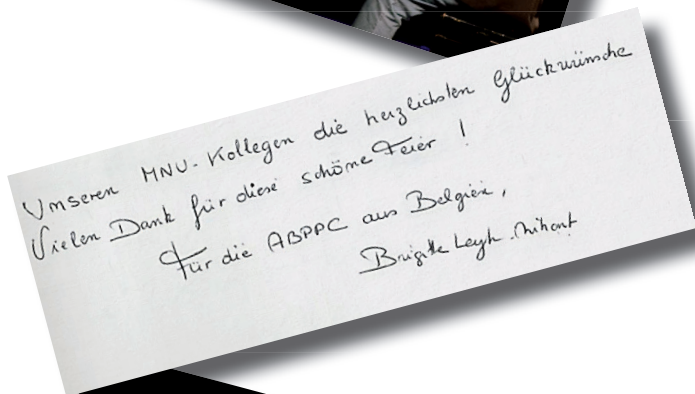 Unseren MNU-Kollegen die herzlichsten Glückwünsche
Vielen Dank für diese schöne Feier !
Für die ABPPC aus Belgien,
Brigitte Leyh